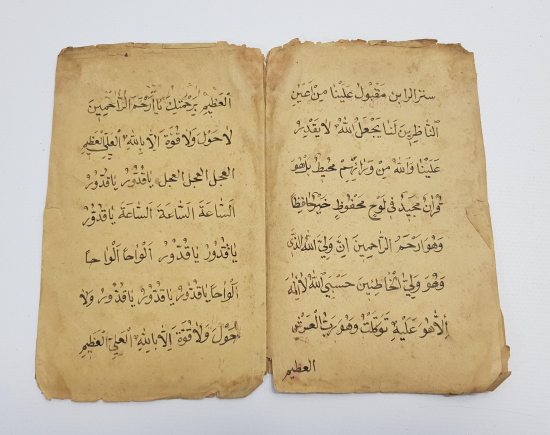 ستر الرا بن مقبول علينا من اعين
الناظرين لنا يجعل الله لا يقدر
علينا والله من ورائهم محيط بل هو
قران مجيد في لوح محفوظ خير حافظا
وهو ارحم الراحمين ان ولي الله الذي
وهو ولي حسبي الله لا اله
الا هو عليه توكلت وهو رب العرش
العظيم
العظيم برحمتك يا ارحم الراحمين
لا حول ولا قوة الا بالله العلي العظيم
العجل العجل العجل يا قدور يا قدور
الساعة الساعة الساعة يا قدور
يا قدور يا قدور الواحا الواحا
الواحا يا قدور يا قدور يا قدور ولا
حول ولا قوة الا بالله العلي العظيم